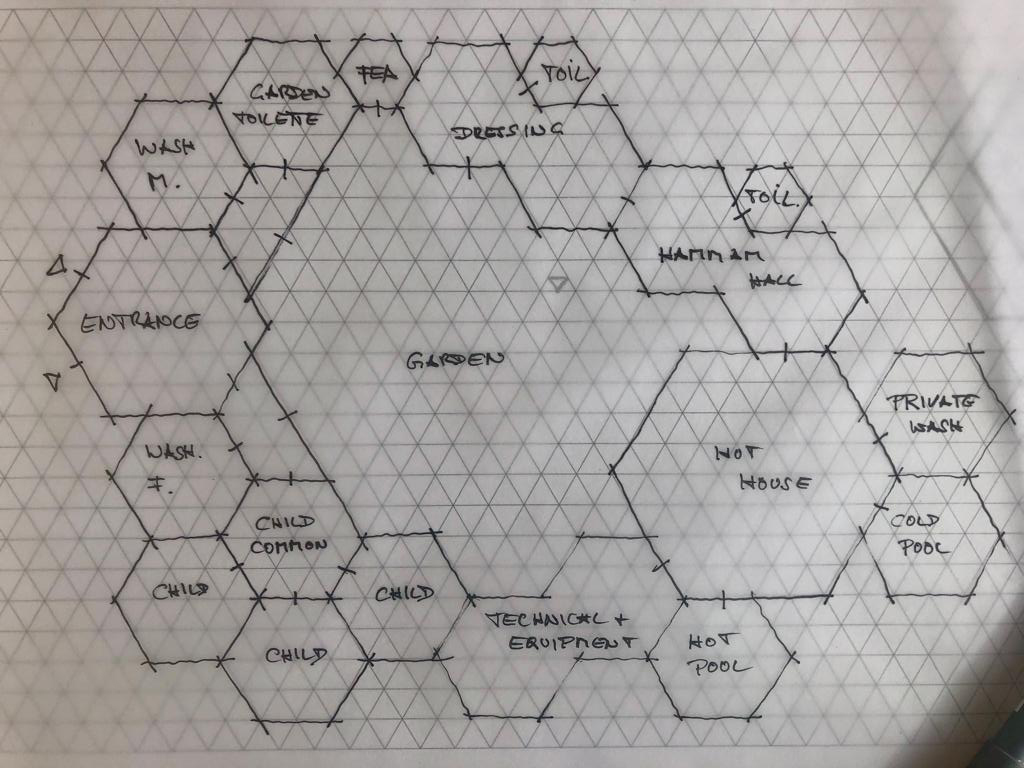 GARDEN
TOILETTE
TEA
TOIL
DRESSING
WASH
M.
TOIL.
HAMMAM
HALL
ENTRANCE
GARDEN
PRIVATE
WASH
WASH.
F.
HOT
HOUSE
CHILD
COMMON
COLD
POOL
CHILD
CHILD
TECHNICAL +
EQUIPMENT
HOT
POOL
CHILD